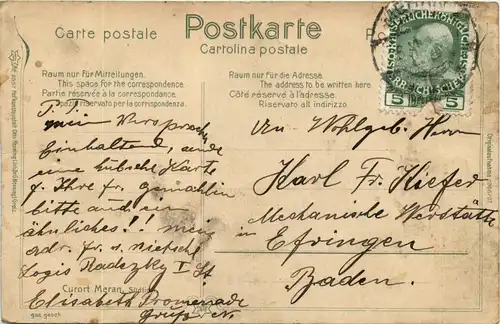 Carte postale
Postkarte
Cartolina postale
Raum nur für Mitteilungen.
This space for the correspondence.
Partie réservée à la correspondance.
Spazio riservato per la corrispondenza.
Raum nur für die Adresse.
The address to be written here
Côté réservé à l'adresse.
Riservato all indirizzo.
5 5
mein Versprechen
Einhaltend, sende
eine hübsche Karte
f. Ihre fr. gemahlin
bitte auch ein
ähnliches!! mein
adr. fr. v.
Logis Radezky I St
Elisabeth Promenade
Grüße
An Wohlgeb. Herrn
Karl Fr. Kiefer
Mechanische Werstätte
Efringen
Baden.
Curort Meran, Südtirol
ges. gesch.